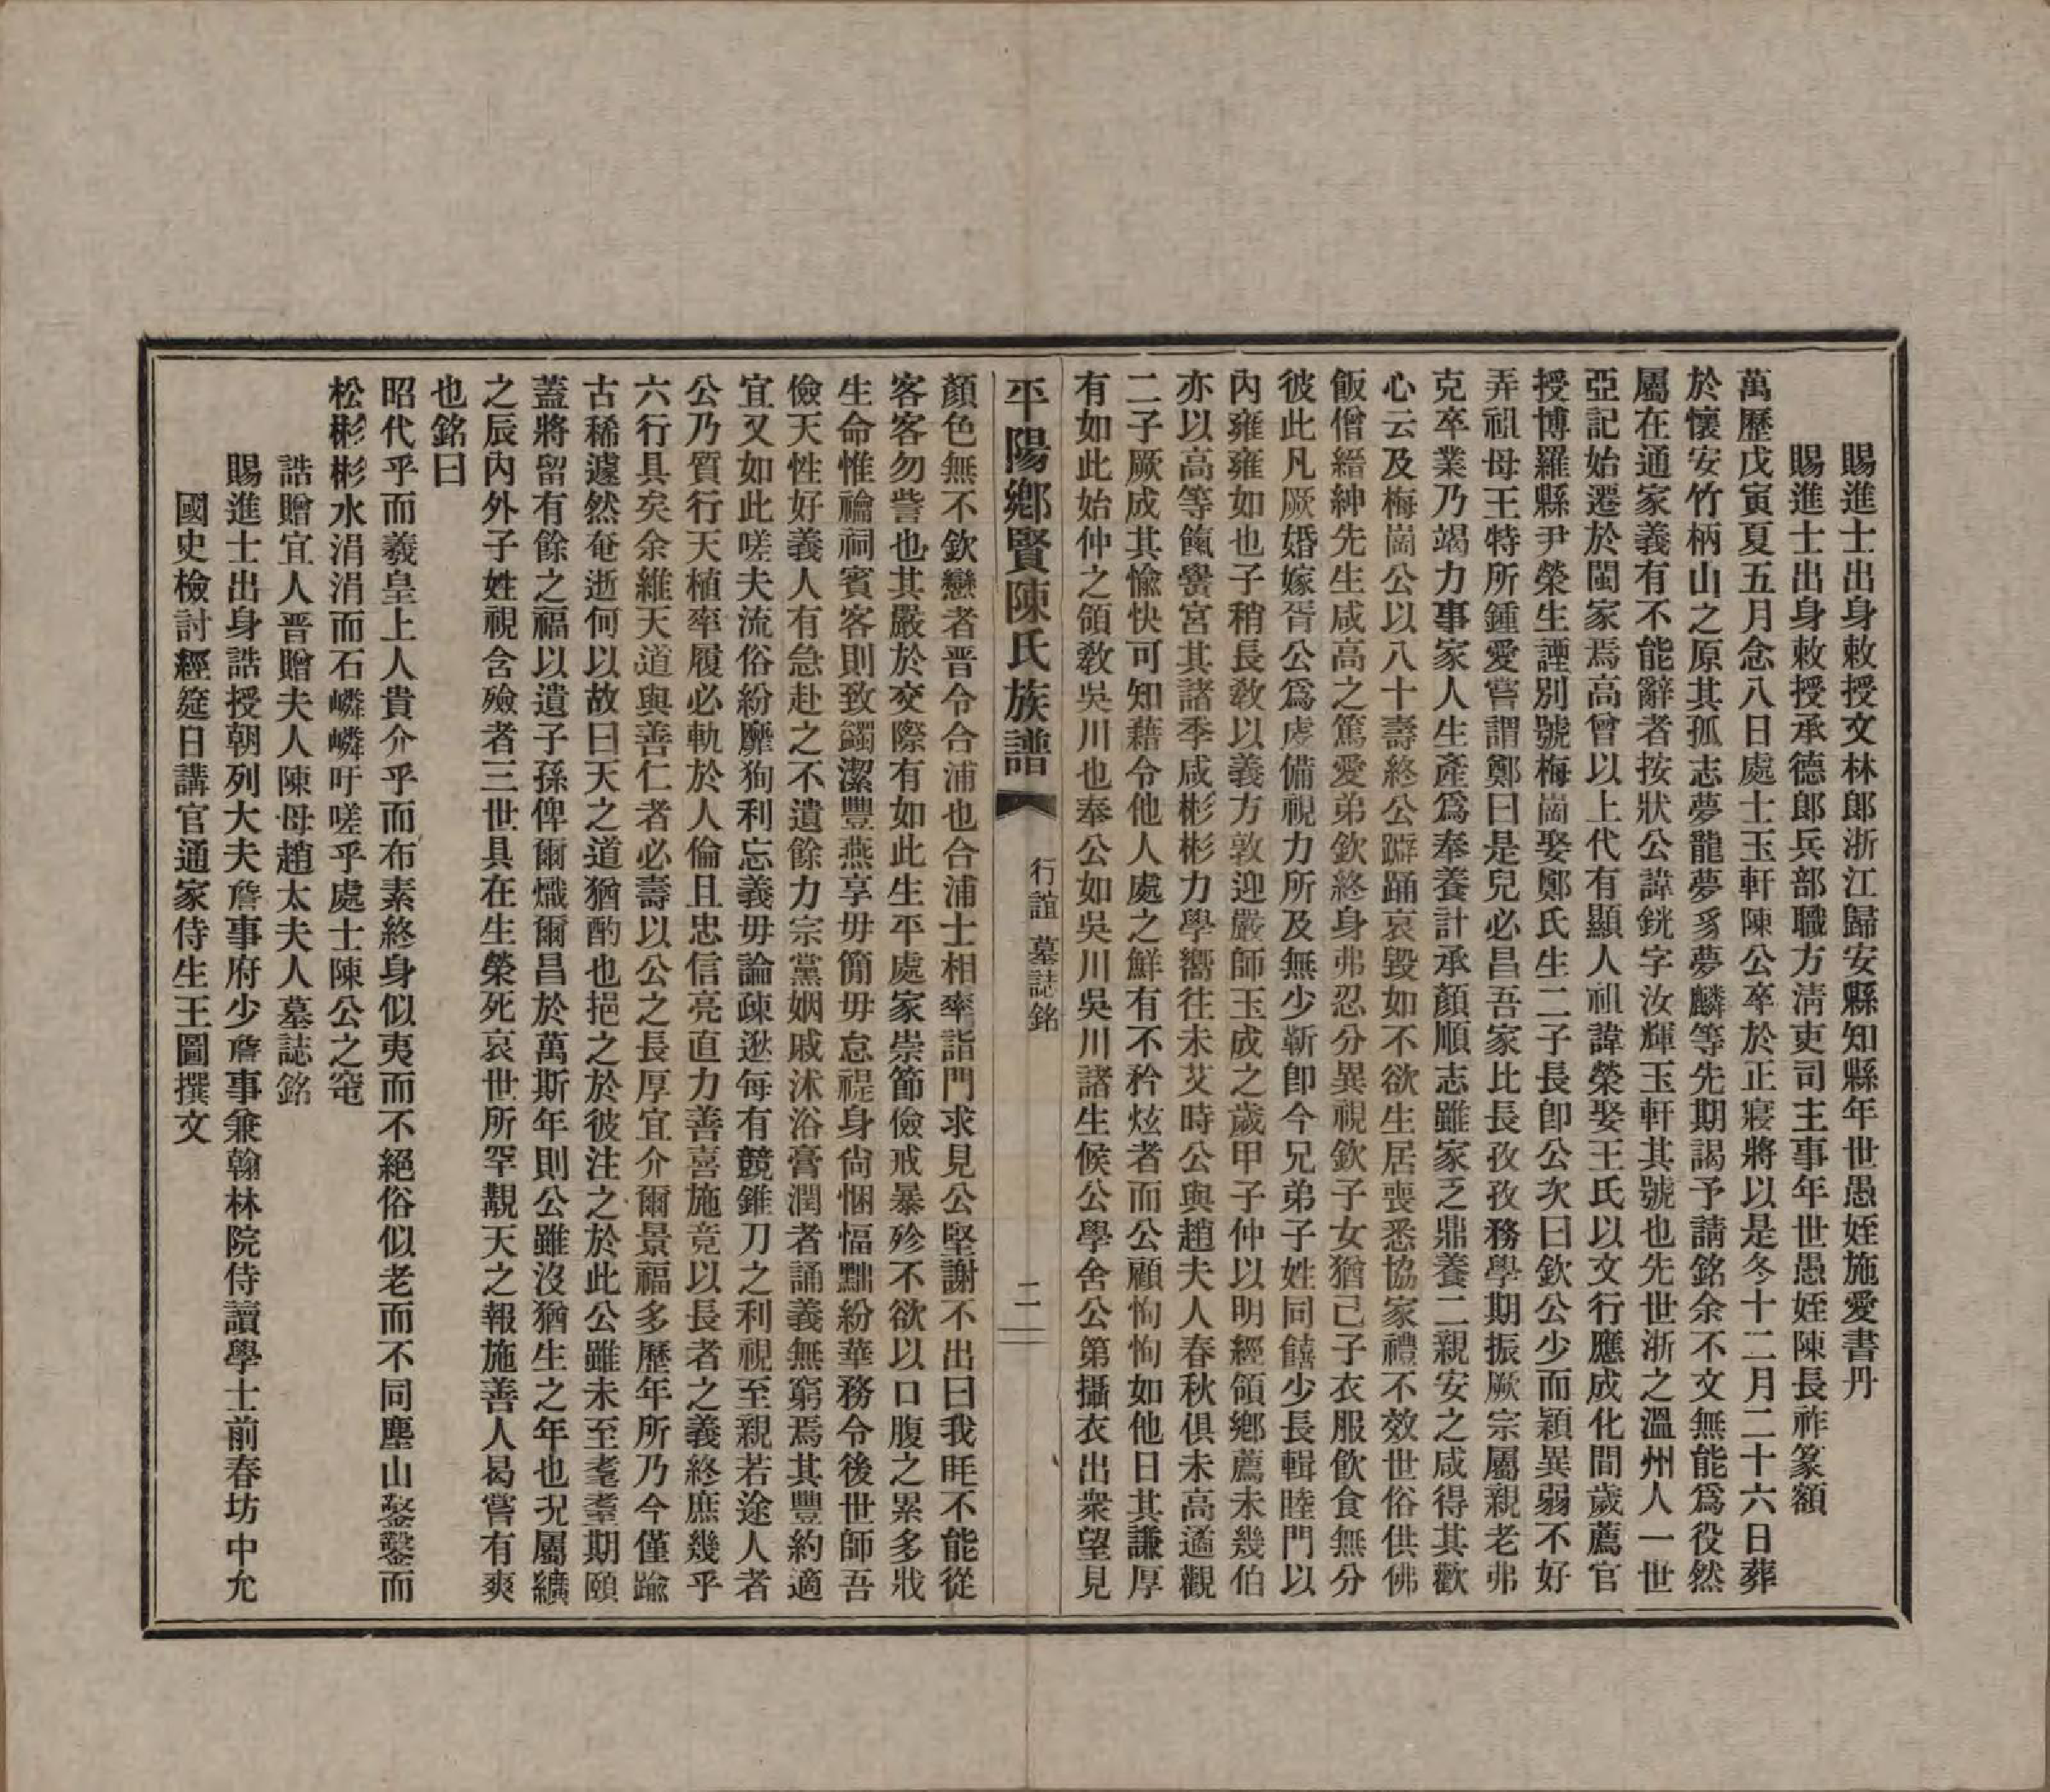 賜進士出身敕授文林郎浙江歸安縣知縣年世愚姪施愛書丹
賜進士出身敕授承德郎兵部職方淸吏司主事年世愚姪陳長祚篆額
萬歷戊寅夏五月念八日處士玉軒陳公卒於正寢將以是冬十二月二十六日葬
於懷安竹柄山之原其孤志夢龍夢豸夢麟等先期謁予請銘余不文無能爲役然
屬在通家義有不能辭者按狀公諱銧字汝輝玉軒其號也先世浙之溫州人一世
亞記始遷於閩家焉高曾以上代有顯人祖諱榮娶王氏以文行應成化間歲薦官
授博羅縣尹榮生諲別號梅崗娶鄭氏生二子長卽公次曰欽公少而穎異弱不好
弄祖母王特所鍾愛嘗謂鄭曰是兒必昌吾家比長孜孜務學期振厥宗屬親老弗
克卒業乃竭力事家人生產爲奉養計承顏順志雖家乏鼎養二親安之咸得其歡
心云及梅崗公以八十壽終公擗踊哀毀如不欲生居喪悉協家禮不效世俗供佛
飯僧縉紳先生咸高之篤愛弟欽終身弗忍分異視欽子女猶己子衣服飮食無分
彼此凡厥婚嫁胥公爲虔備視力所及無少靳卽今兄弟子姓同饎少長輯睦門以
內雍雍如也子稍長敎以義方敦迎嚴師玉成之歲甲子仲以明經領鄕薦未幾伯
亦以高等餼黌宮其諸季咸彬彬力學嚮往未艾時公與趙夫人春秋俱未高遹觀
二子厥成其愉快可知藉令他人處之鮮有不矜炫者而公顧恂恂如他日其謙厚
有如此始仲之領敎吳川也奉公如吳川吳川諸生候公學舍公第攝衣出衆望見
平陽鄉賢陳氏族譜 行誼 墓誌銘 二
顏色無不欽戀者晋令合浦也合浦士相率詣門求見公堅謝不出曰我旺不能從
客客勿訾也其嚴於交際有如此生平處家崇節儉戒暴殄不欲以口腹之累多戕
生命惟禴祠賓客則致蠲潔豐燕享毋簡毋怠禔身尙悃愊黜紛華務令後世師吾
儉天性好義人有急赴之不遺餘力宗黨姻戚沭浴膏潤者誦義無窮焉其豐約適
宜又如此嗟夫流俗紛靡狥利忘義毋論疎逖每有競錐刀之利視至親若途人者
公乃質行天植率履必軌於人倫且忠信亮直力善喜施竟以長者之義終庶幾乎
六行具矣余維天道與善仁者必壽以公之長厚宜介爾景福多歷年所乃今僅踰
古稀遽然奄逝何以故曰天之道猶酌也挹之於彼注之於此公雖未至耄耋期頤
蓋將留有餘之福以遺子孫俾爾熾爾昌於萬斯年則公雖沒猶生之年也況屬纊
之辰內外子姓視含殮者三世具在生榮死哀世所罕覯天之報施善人曷嘗有爽
也銘曰
昭代乎而羲皇上人貴介乎而布素終身似夷而不絕俗似老而不同塵山嶅鏊而
松彬彬水涓涓而石嶙嶙吁嗟乎處士陳公之窀
誥贈宜人晋贈夫人陳母趙太夫人墓誌銘
賜進士出身誥授朝列大夫詹事府少詹事兼翰林院侍讀學士前春坊中允
國史檢討經筵日講官通家侍生王圖撰文